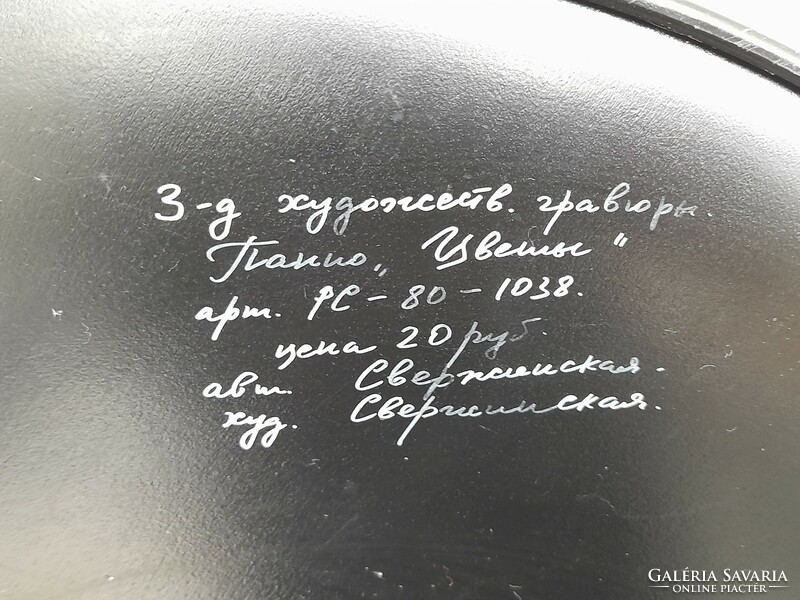 З-д художеств. гравюры.
Панно „Цветы"
арт. РС-80-1038.
цена 20 руб.
авт.
худ.
GALÉRIA SAVARIA
ONLINE PIACTÉR